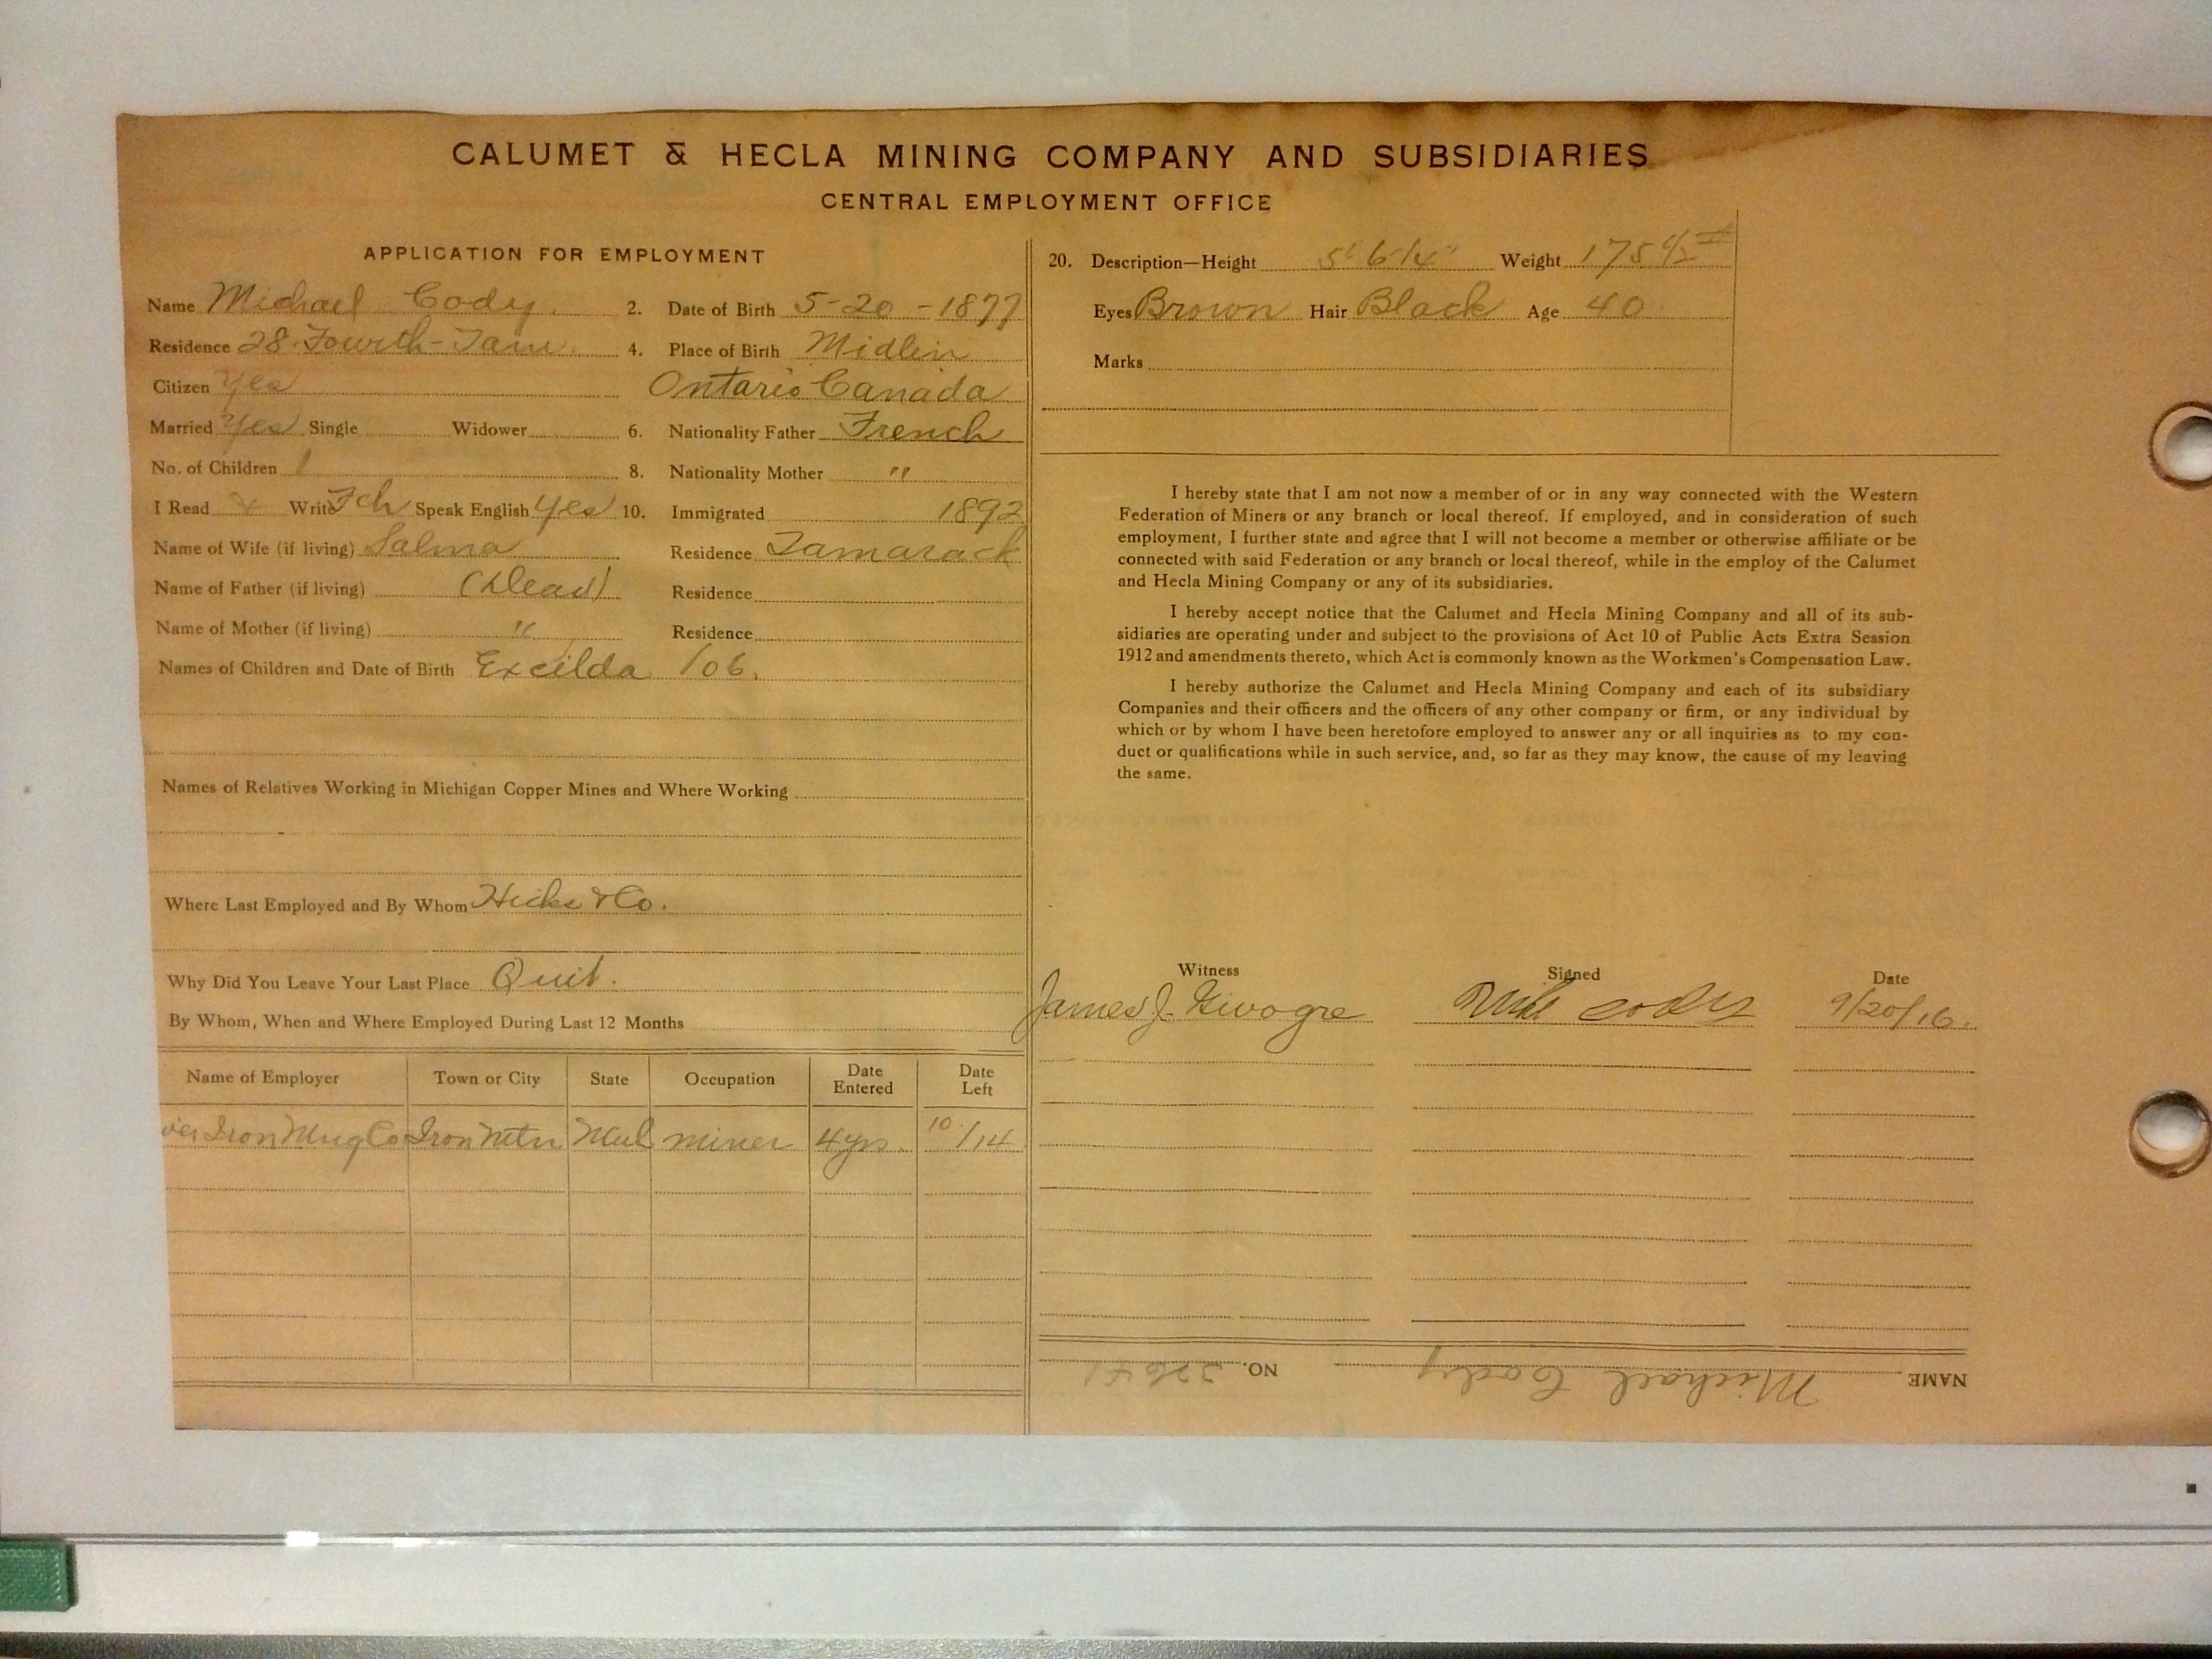 CALUMET & HECLA MINING COMPANY AND SUBSIDIARIES
CENTRAL EMPLOYMENT OFFICE
APPLICATION FOR EMPLOYMENT
Name Michael Cody. 2. Date of Birth 5-20-1877
Residence 28 Fourth-Tam. 4. Place of Birth Midlin
Citizen Yes Ontario Canada
Married Yes Single Widower 6. Nationality Father French
No. of Children 1 8. Nationality Mother "
I Read Write Fch Speak English Yes 10. Immigrated 1892
Name of Wife (if living) Salma Residence Tamarack
Name of Father (if living) (Dead) Residence
Name of Mother (if living) " Residence
Names of Children and Date of Birth Excilda /06.
Names of Relatives Working in Michigan Copper Mines and Where Working
Where Last Employed and By Whom Hicks & Co.
Why Did You Leave Your Last Place Quit.
By Whom, When and Where Employed During Last 12 Months
Name of Employer Town or City State Occupation Date Entered Date Left
Iron Mng Co Iron Mtn miner 4 yrs. 10/14
20. Description—Height 5' 6 1/4" Weight 175 1/2 #
Eyes Brown Hair Black Age 40
Marks
I hereby state that I am not now a member of or in any way connected with the Western
Federation of Miners or any branch or local thereof. If employed, and in consideration of such
employment, I further state and agree that I will not become a member or otherwise affiliate or be
connected with said Federation or any branch or local thereof, while in the employ of the Calumet
and Hecla Mining Company or any of its subsidiaries.
I hereby accept notice that the Calumet and Hecla Mining Company and all of its sub-
sidiaries are operating under and subject to the provisions of Act 10 of Public Acts Extra Session
1912 and amendments thereto, which Act is commonly known as the Workmen's Compensation Law.
I hereby authorize the Calumet and Hecla Mining Company and each of its subsidiary
Companies and their officers and the officers of any other company or firm, or any individual by
which or by whom I have been heretofore employed to answer any or all inquiries as to my con-
duct or qualifications while in such service, and, so far as they may know, the cause of my leaving
the same.
Witness Signed Date
James J. Mike Cody 9/20/16.
NAME Michael Cody NO.